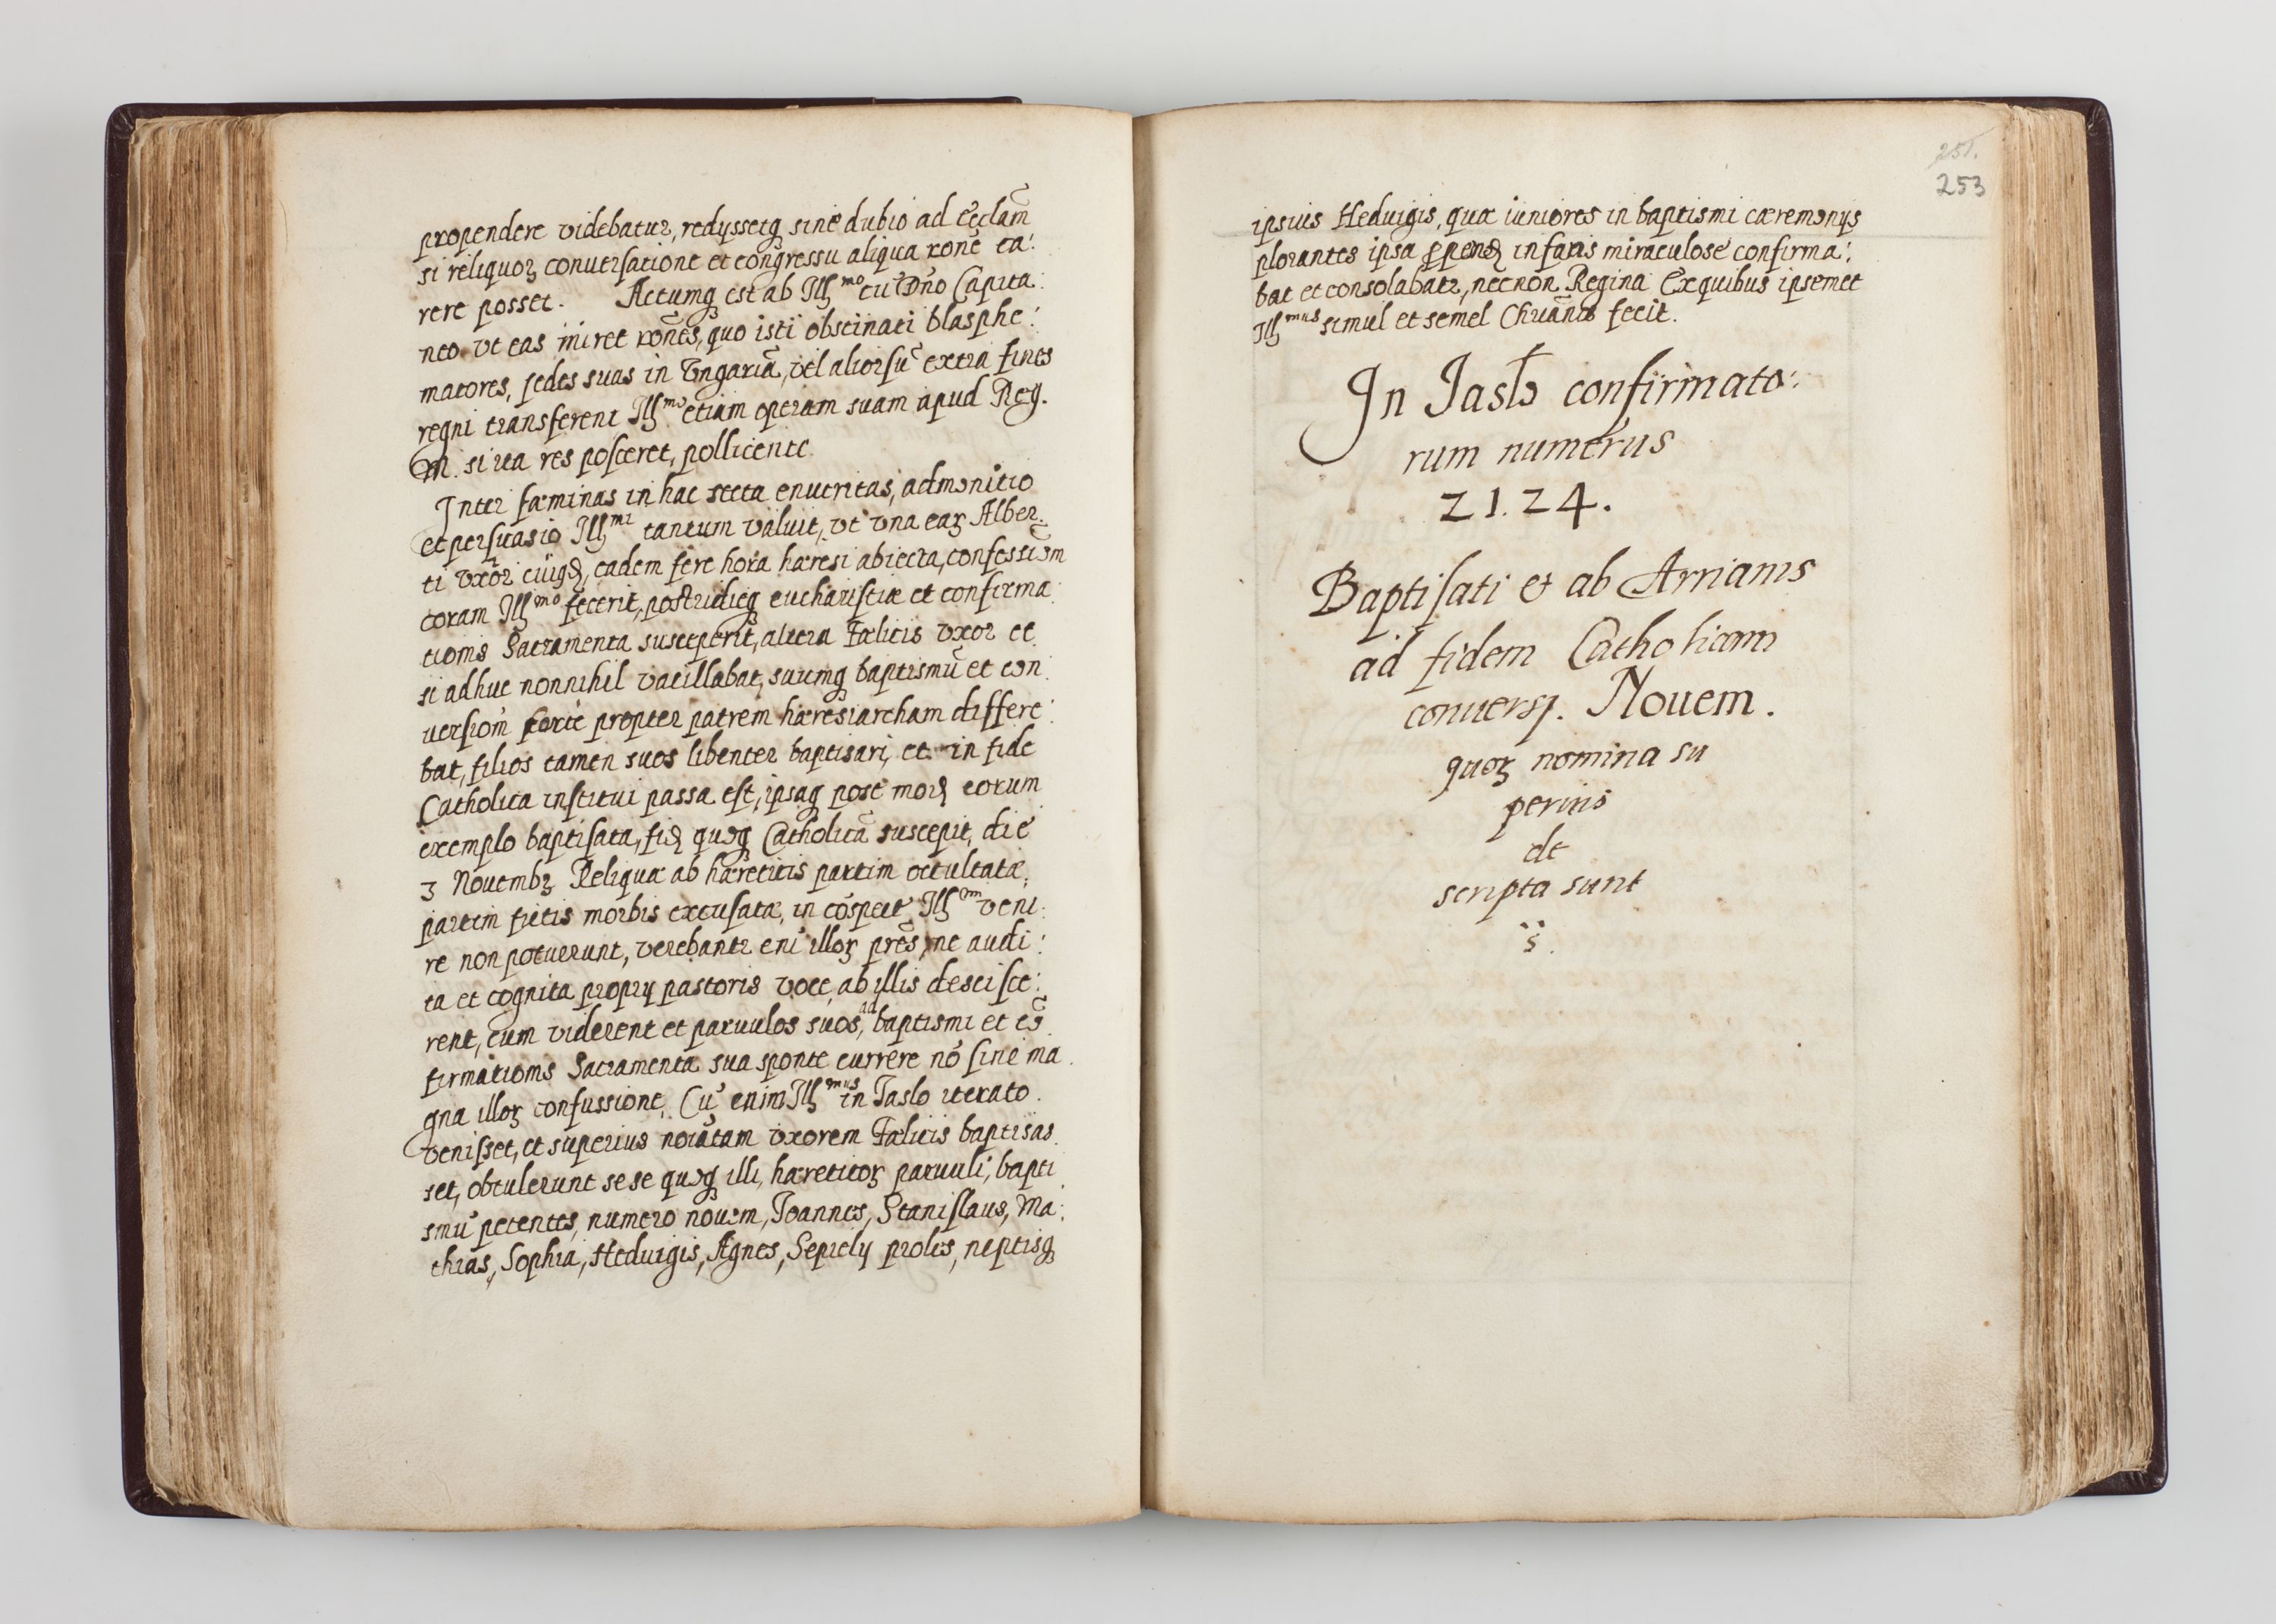 propendere videbatur, redijssetq; sine dubio ad Ecclãm
si reliquoꝝ conuersatione et congressu aliqua rone ca:
rere posset. Actumq; est ab Illmo cũ Dño Capita:
neo vt eas iniret rones, quo isti obstinati blasphe:
matores, sedes suas in Vngariã, vel aliorsũ extra fines
regni transferent Illmo etiam operam suam apud Reg.
M. si ita res posceret, pollicente.
Inter fæminas in hac secta enutritas, admonitio
et persuasio Illmi tantum valuit, vt vna eaꝝ Alber:
ti vxor eadem fere hora hæresi abiecta, confessionem
coram Illmo fecerit, postridieq; eucharistiæ et confirma:
tionis Sacramenta susceperit, altera Fælicis vxor et
si adhuc nonnihil vacillabat, suumq; baptismũ et con
uersiom forte propter patrem hæresiarcham differe:
bat, filios tamen suos libenter baptisari, et in fide
Catholica institui passa est, ipsaq; post eorum
exemplo baptisata, quoq; Catholicã suscepit, die
3 Nouembꝝ Reliquæ ab hæreticis partim occultatæ,
partim fictis morbis excusatæ, in cõspect Illm veni:
re non potuerunt, verebantr eni illoꝝ pres, ne audi:
ta et cognita proprij pastoris voce, ab illis desisce:
rent, cum viderent et paruulos suos, ad baptismi et cõ
firmationis Sacramenta sua sponte currere nõ sine ma
gna illoꝝ confussione, Cũ enim Illmus in Jaslo iterato
venisset, et superius notatam vxorem Fælicis baptisas
set, obtulerunt se se quoq; illi, hæreticoꝝ paruuli, bapti
smũ petentes, numero nouem, Joannes, Stanislaus, Ma:
thias, Sophia, Heduigis, Agnes, proles, neptisq;
251.
253
ipsius Heduigis, quæ iuniores in baptismi cæremonijs
plorantes ipsa infans miraculose confirma:
bat et consolabatr, necnon Regina Ex quibus ipsemet
Illmus simul et semel fecit.
In Jaslo confirmato:
rum numerus
2124.
Baptisati et ab Arrianis
ad fidem Catholicam
conuersj. Nouem.
quoꝝ nomina su
perius
de
scripta sunt
s.